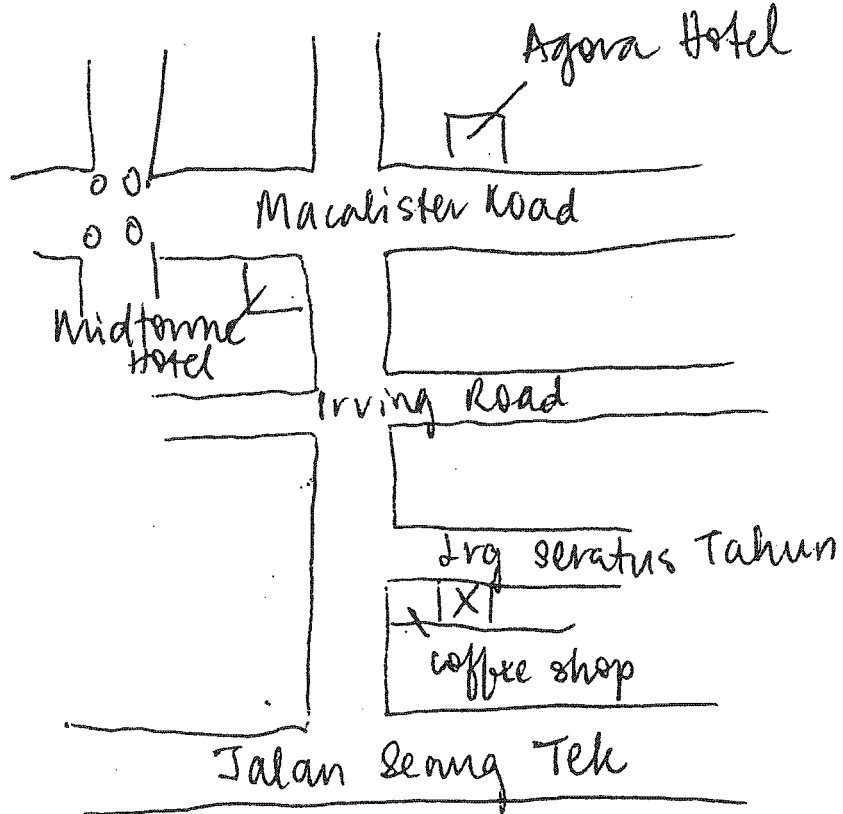 Agora Hotel
Macalister Road
Midtowne
Hotel
Irving Road
Lrg Seratus Tahun
X
coffee shop
Jalan Seang Tek